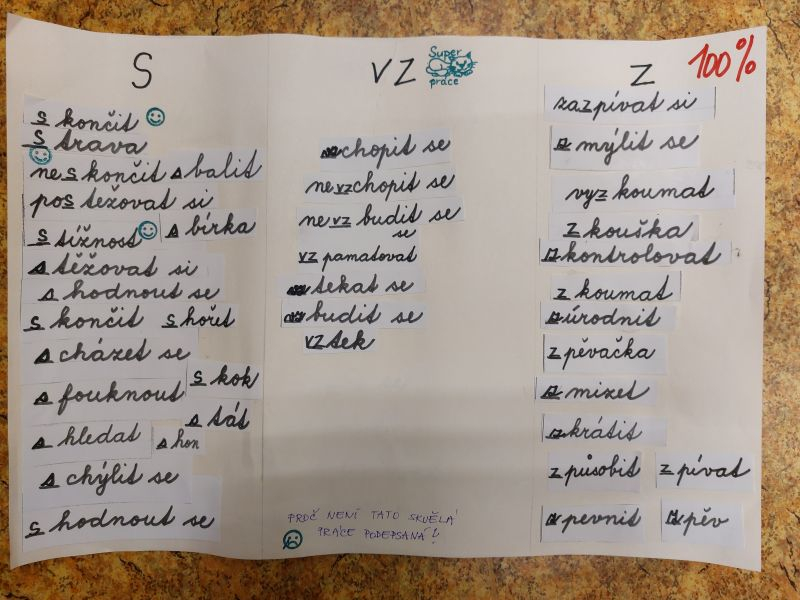 S
skončit
strava
neskončit sbalit
postěžovat si
stížnost sbírka
stěžovat si
shodnout se
skončit shořet
scházet se
sfouknout skok
stát
shledat shon
schýlit se
shodnout se
VZ
Super
práce
vzchopit se
nevzchopit se
nevzbudit se
se
vzpamatovat
vztekat se
vzbudit se
vztek
PROČ NENÍ TATO SKVĚLÁ
PRÁCE PODEPSANÁ!
Z
100%
zazpívat si
zmýlit se
vyzkoumat
zkouška
zkontrolovat
zkoumat
zúrodnit
zpěvačka
zmizet
zkrátit
způsobit zpívat
zpevnit zpěv